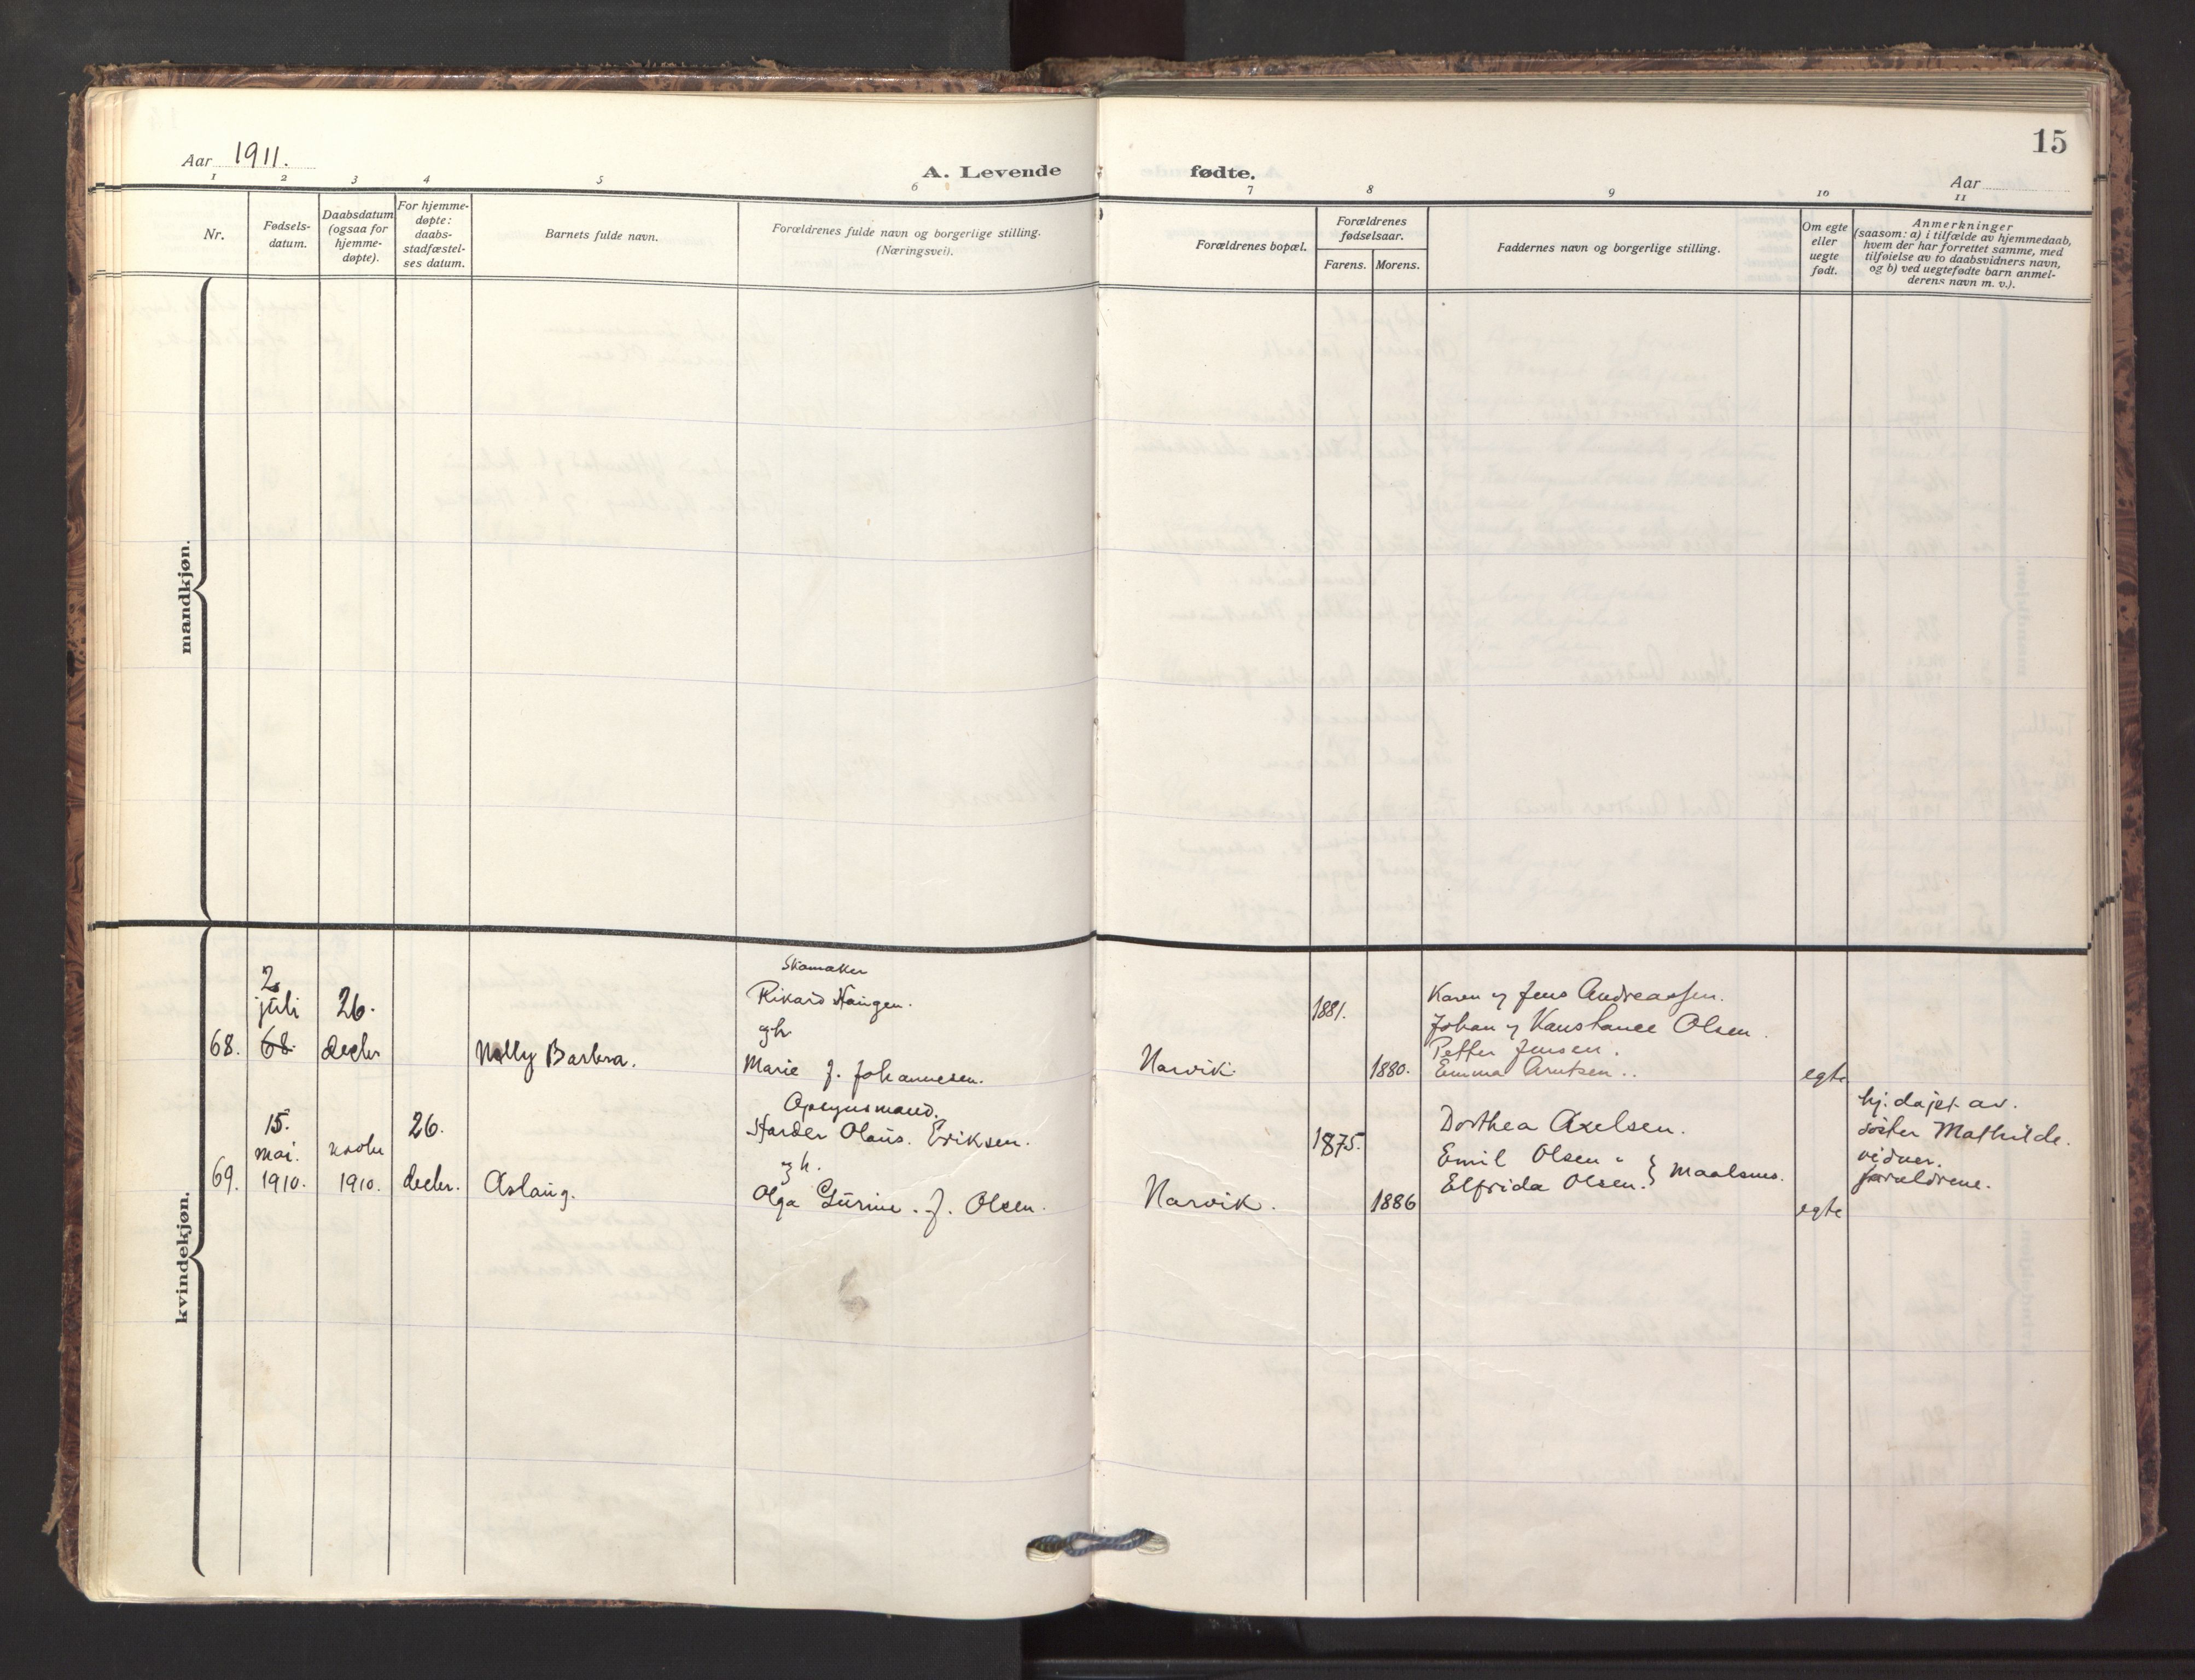 15
Aar 1911.
A. Levende fødte.
Aar
1 2 3 4 5 6 7 8 9 10 11
Nr.
Fødsels-
datum.
Daabsdatum
(ogsaa for
hjemme-
døpte).
For hjemme-
døpte:
daabs-
stadfæstel-
ses datum.
Barnets fulde navn.
Forældrenes fulde navn og borgerlige stilling.
(Næringsvei).
Forældrenes bopæl.
Forældrenes
fødselsaar.
Farens. Morens.
Faddernes navn og borgerlige stilling.
Om egte
eller
uegte
født.
Anmerkninger
(saasom: a) i tilfælde av hjemmedaab,
hvem der har forrettet samme, med
tilføielse av to daabsvidners navn,
og b) ved uegtefødte barn anmel-
derens navn m. v.).
mandkjøn.
kvindekjøn.
68.
2
juli
68.
26.
decbr
Nelly Barbra.
Skomaker
Rikard Haugen.
og h.
Marie f. Johannesen.
Narvik.
1881.
1880.
Karen og Jens Andreassen.
Johan og Konstance Olsen.
Petter Jensen.
Emma Arntsen..
egte
69.
15.
mai.
1910.
novbr
1910.
26.
decbr.
Aslaug.
Opsynsmand.
Harder Olaus. Eriksen.
og h.
Olga Lurine. f. Olsen.
Narvik.
1875.
1886
Dorthea Axelsen.
Emil Olsen "
Elfrida Olsen. } Maalsnes.
egte
hj. døpt av.
søster Mathilde.
vidner.
forældrene.